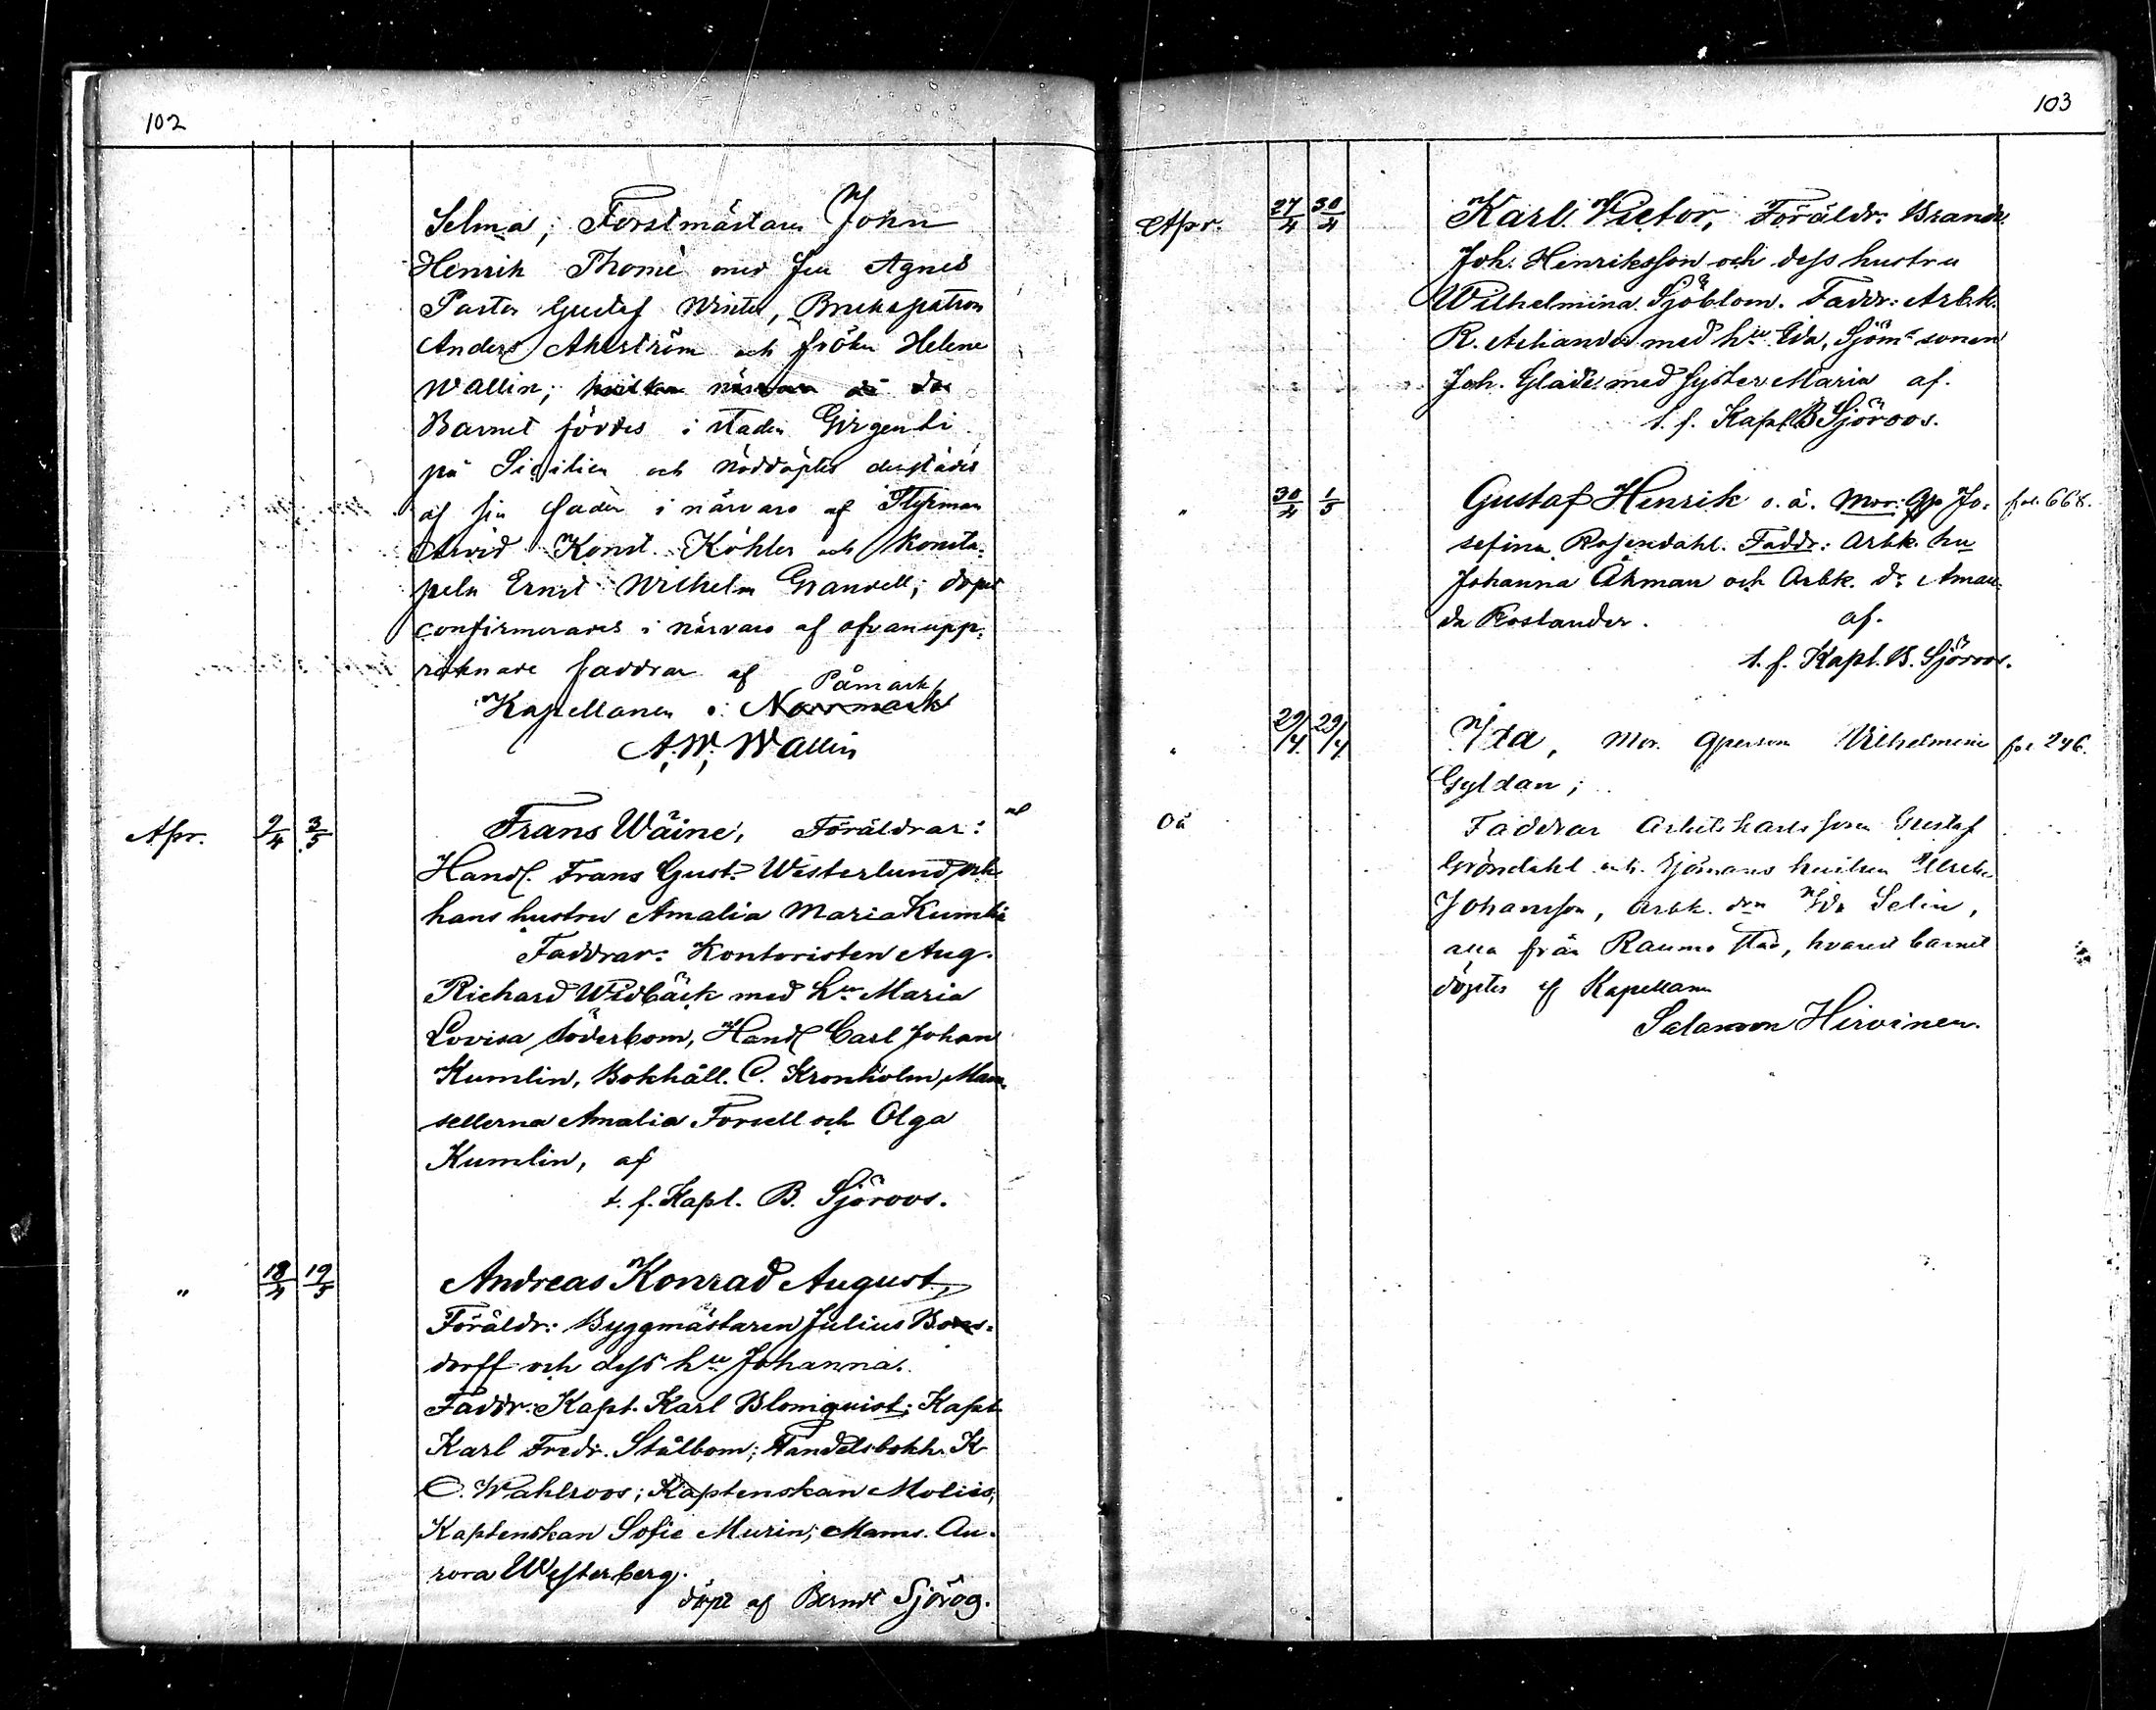 102
Selma; Forstmästaren John
Henrik Thomé med fru Agnes
Pastor Gustaf Winter, Brukspatron
Anders Ahlström och fröken Helene
Wallin;
Barnet föddes i staden Girgenti
på Sicilien och nöddöptes derstädes
af sin fader i närvaro af Styrman
Arvid Konst. Köhler och Konsta-
peln Ernst Wilhelm Grandell; dopet
confirmerades i närvaro af ofvanupp-
räknade faddrar af
Påmark
Kapellanen i Norrmark
A. W. Wallin
Apr. 9/4 3/5 Frans Wäinö, Föräldrar:
Handl. Frans Gust. Westerlund och
hans hustru Amalia Maria Kumlin
Faddrar: Kontoristen Aug.
Richard Widbäck med hu Maria
Lovisa Söderbom, Handl Carl Johan
Kumlin, Bokhåll. C. Kronholm, Mam-
sellerna Amalia Forsell och Olga
Kumlin, af
t. f. Kapl. B. Sjöroos.
" 18/4 19/5 Andreas Konrad August,
Föräldr: Byggmästaren Julius Bons-
dorff och dess hu Johanna.
Faddr: Kapt. Karl Blomquist; Kapt.
Karl Fredr. Stålbom; Handelsbokh. K
O. Wahlroos; Kaptenskan Moliis;
Kaptenskan Sofie Murin; Mams. Au-
rora Westerberg.
döpt af Berndt Sjöros.
103
Apr. 27/4 30/4 Karl Victor, Föräldr: Brandv.
Joh. Henriksson och dess hustru
Wilhelmina Sjöblom. Faddr: Arbk.
R. Achander med hu Ida, Sjöms sonen
Joh. Glade med syster Maria af.
t. f. Kapl B Sjöroos.
" 30/4 1/5 Gustaf Henrik o. ä. Mor: Qp Jo- fol. 668.
sefina Rosendahl. Faddr: Arbk. hu
Johanna Åhman och Arbk. do Aman-
da Roslander. af.
t. f. Kapl. B. Sjöroos.
" 29/4 29/4 Ida, Mor. qperson Vilhelmina fol 246.
Gyldan;
oä Faddrar Arbetskarls son Gustaf
Gröndahl och Sjömans hustrun Ulrika
Johansson, Arbk. don Ida Selin,
alla från Raumo stad, hvarest barnet
döptes af Kapellanen
Salomon Hirvinen.